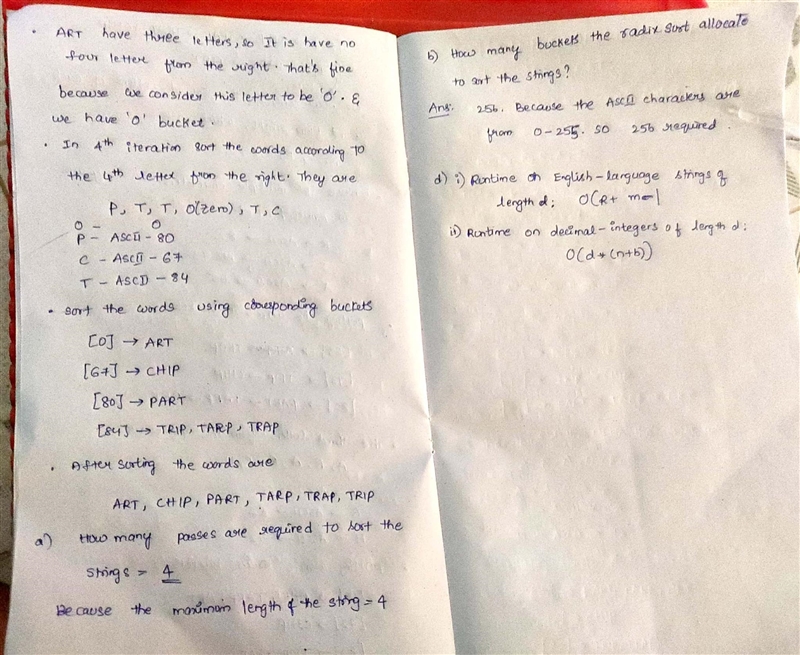 • ART have three letters, so It is have no
four letter from the right. That's fine
because we consider this letter to be 'O'. &
we have 'O' bucket.
• In 4th iteration sort the words according To
the 4th letter from the right. They are
P, T, T, O(Zero), T, C
O – O
P – ASCII – 80
C – ASCII – 67
T – ASCII – 84
• sort the words using corresponding buckets
[0] → ART
[67] → CHIP
[80] → PART
[84] → TRIP, TARP, TRAP
• After sorting the words are
ART, CHIP, PART, TARP, TRAP, TRIP
a) How many passes are required to sort the
strings = 4
Because the maximum length of the string = 4
b) How many buckets the radix sort allocate
to sort the strings?
Ans: 256. Because the ASCII characters are
from 0-255. SO 256 required.
d) i) Runtime on English-language strings of
length d; O(R+ m
ii) Runtime on decimal-integers of length d:
O(d * (n+b))